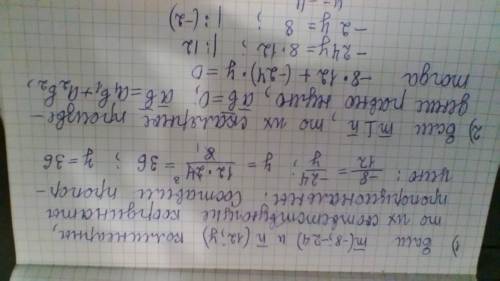 1) Если m̅(-8;-24) и n̅ (12;y) коллинеарны,
то их соответствующие координаты
пропорциональны. Составим пропор-
цию: -8/12 = -24/y ; y = 12·24³/8₁ = 36 ; y = 36
2) Если m̅⊥n̅, то их скалярное произве-
дение равно нулю, a̅b̅=0; a̅b̅=a₁b₁+a₂b₂,
тогда -8·12+(-24)·y=0
-24y=8·12 ; |:12
-2y = 8 ; |:(-2)